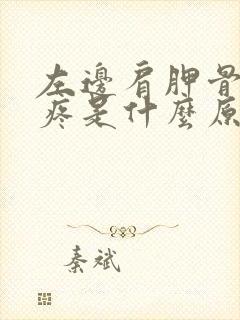 左邊肩胛骨
疼是什麼原
秦斌